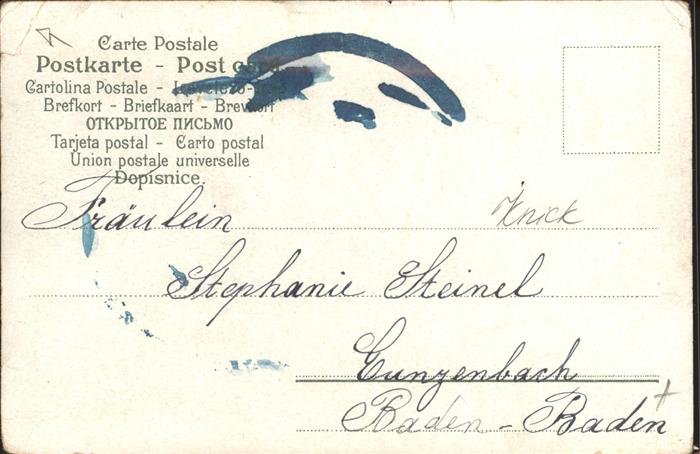 Carte Postale
Postkarte - Post card
Cartolina Postale -
Brefkort - Briefkaart - Brevkort
ОТКРЫТОЕ ПИСЬМО
Tarjeta postal - Carto postal
Union postale universelle
Dopisnice.
Fräulein
Knick
Stephanie Steinel
Gunzenbach
Baden - Baden